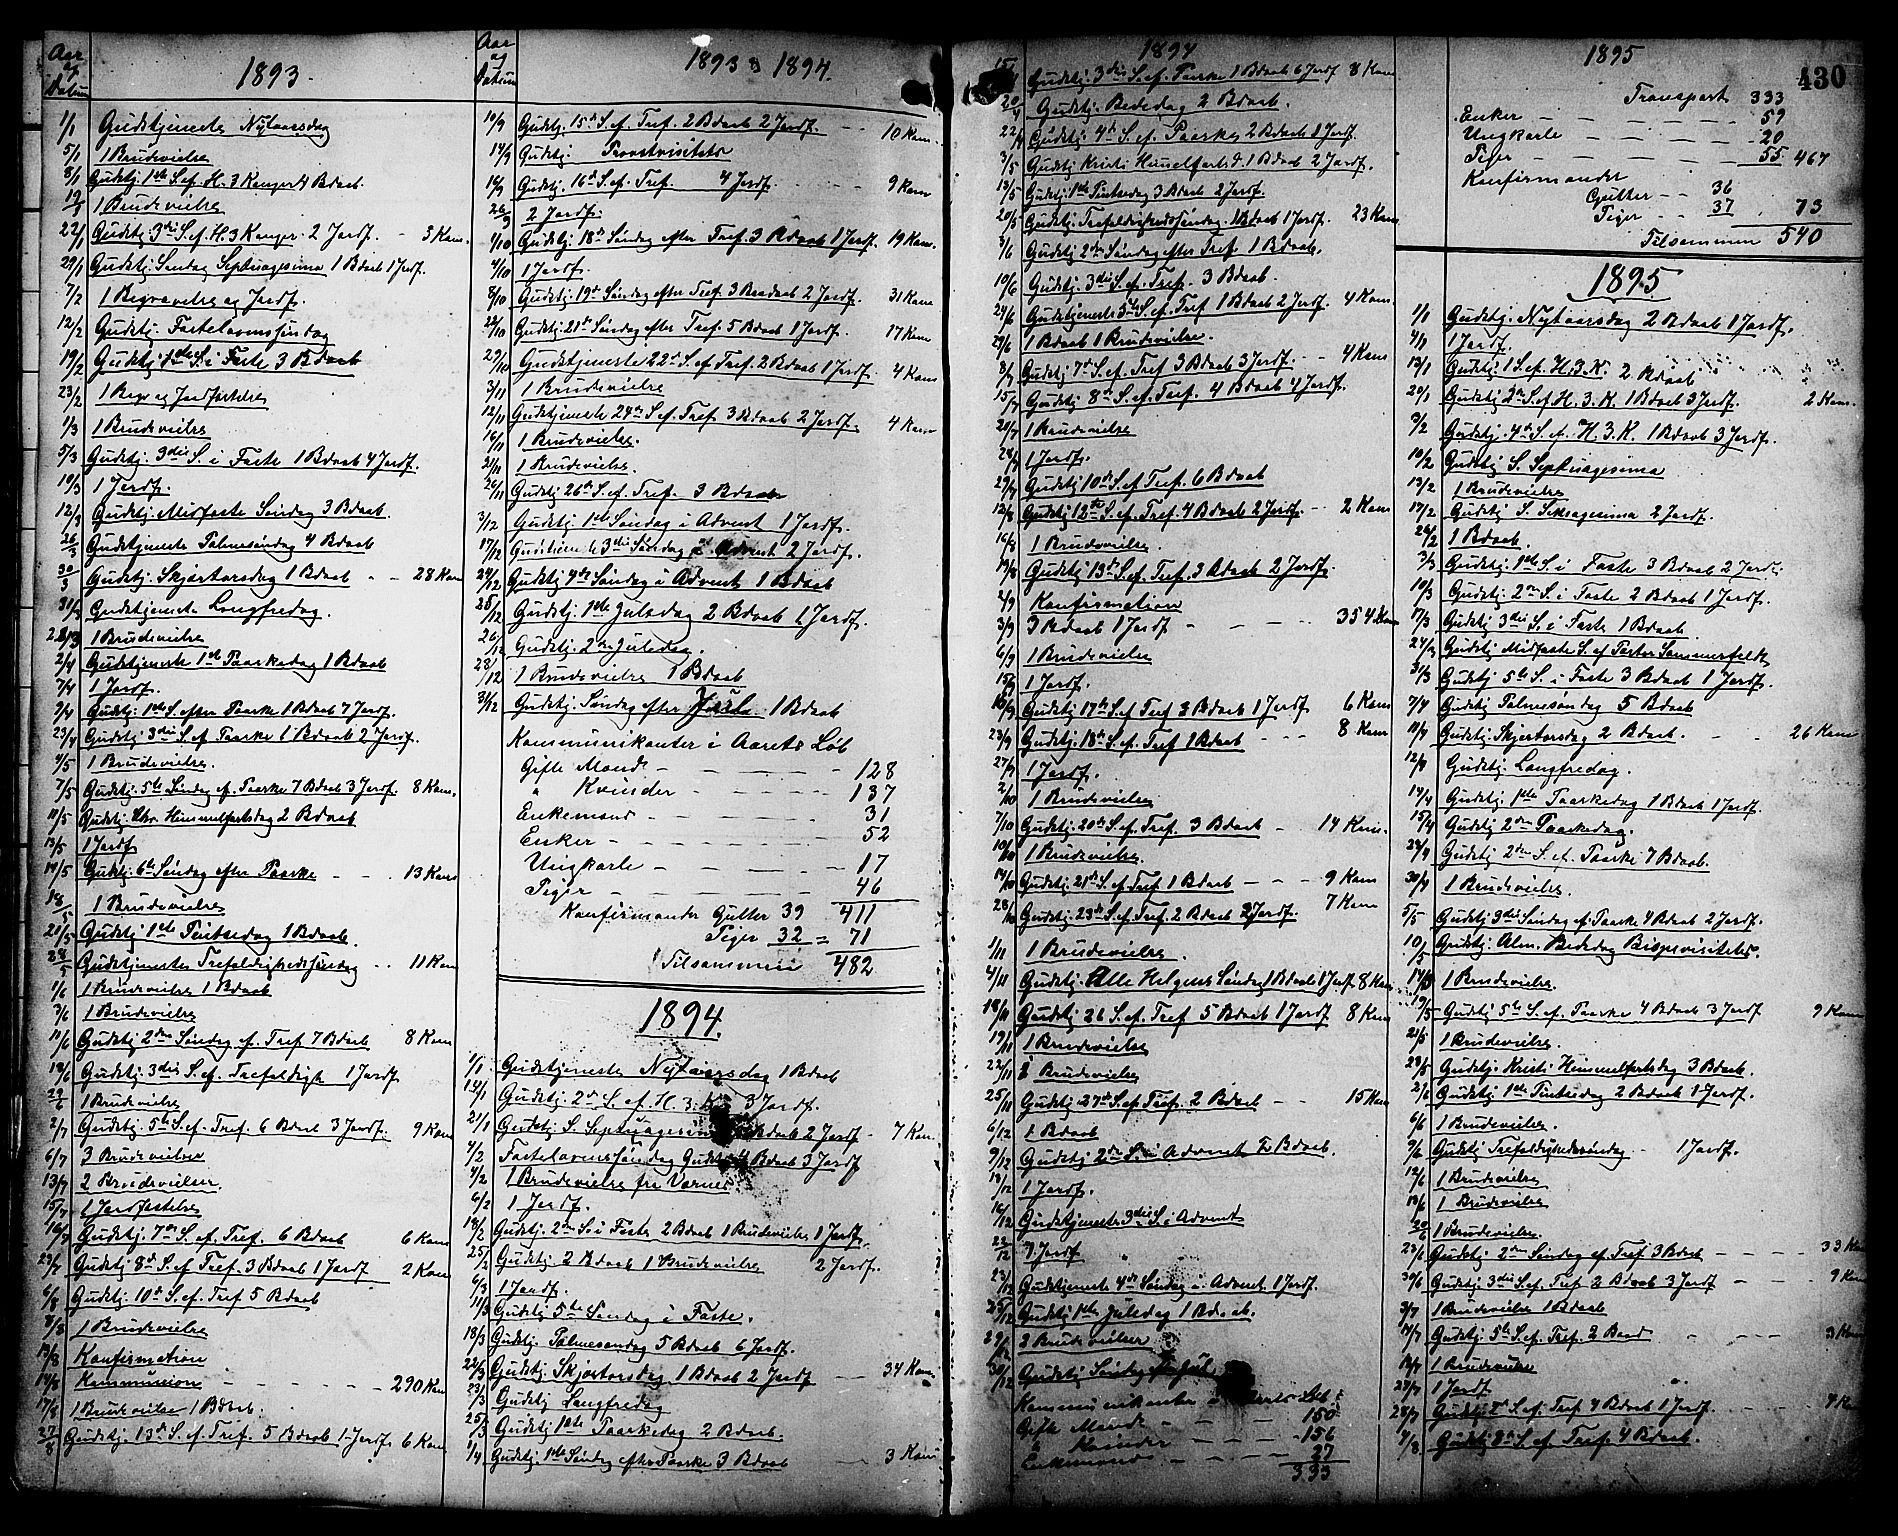 Aar
og
Datum
1893.
1/1 Gudstjeneste Nytaarsdag
5/1 1 Brudevielse
8/1 Gudstj. 1ste S. ef. H. 3 Konger 4 Bdaab.
12/1 1 Brudevielse
22/1 Gudstj. 3die S. ef. H. 3 Konger. 2 Jordf. - 3 Kom.
29/1 Gudstj. Søndag Septuagesima 1 Bdaab 1 Jordf.
7/2 1 Begravelse og Jordf.
12/2 Gudstj. Fastelavnssøndag
19/2 Gudstj. 1ste S. i Faste 3 Bdaab
23/2 1 Begr og Jordfæstelse
1/3 1 Brudevielse
5/3 Gudstj. 3die S. i Faste 1 Bdaab 4 Jordf.
10/3 1 Jordf.
12/3 Gudstj. Midfaste Søndag 3 Bdaab.
26/3 Gudstjeneste Palmesøndag 4 Bdaab
30/3 Gudstj. Skjærtorsdag 1 Bdaab - - 28 Kom
31/3 Gudstjeneste Langfredag.
28/3 1 Brudevielse
2/4 Gudstjeneste 1ste Paaskedag 1 Bdaab
7/4 1 Jordf.
9/4 Gudstj. 1ste S. efter Paaske 1 Bdaab 7 Jordf.
23/4 Gudstj. 3die S. ef. Paaske 1 Bdaab 2 Jordf.
4/5 1 Brudevielse.
7/5 Gudstj. 5te Søndag ef. Paaske 7 Bdaab 3 Jordf. 8 Kom.
11/5 Gudstj. Chr. Himmelfartsdag 2 Bdaab
13/5 1 Jordf
14/5 Gudstj. 6te Søndag efter Paaske - - - 13 Kom
18/5 1 Brudevielse
21/5 Gudstj 1ste Pintsedag 1 Bdaab.
28/5 Gudstjeneste Trefoldighedssøndag - - 11 Kom
1/6 1 Brudevielse 1 Bdaab
3/6 1 Brudevielse
11/6 Gudstj 2den Søndag ef. Tref 7 Bdaab 8 Kom
18/6 Gudstj 3die S. ef. Trefoldigh 1 Jordf
22/6 1 Brudevielse
2/7 Gudstj. 5te S. ef. Tref. 6 Bdaab 3 Jordf. 9 Kom
6/7 3 Brudevielser
13/7 2 Brudevielser.
15/7 1 Jordfæstelse
16/7 Gudstj. 7de S. ef. Tref. 6 Bdaab 6 Kom
23/7 Gudstj 8de S. ef. Tref. 3 Bdaab 1 Jordf 2 Kom
6/8 Gudstj. 10de S. ef. Tref 5 Bdaab
8/8 1 Brudevielse
13/8 Konfirmation
14/8 Kommunion - - - - - 290 Kom
17/8 1 Brudevielse 1 Bdaab.
27/8 Gudstj. 13de S. ef. Tref. 5 Bdaab 1 Jordf 6 Kom
Aar
og
Datum
1893 & 1894.
10/9 Gudstj. 15de S. ef. Tref. 2 Bdaab 2 Jordf. - - 10 Kom.
14/9 Gudstj. Provstvisitats
16/9 Gudstj. 16de S. ef. Tref. 4 Jordf. 9 Kom
26/9 2 Jordf.
1/10 Gudstj. 18de Søndag efter Tref. 3 Bdaab 1 Jordf. 19 Kom.
4/10 1 Jordf.
8/10 Gudstj. 19de Søndag efter Tref. 3 Bdaab 2 Jordf. 31 Kom
22/10 Gudstj. 21de Søndag efter Tref. 5 Bdaab 1 Jordf. 17 Kom
29/10 Gudstjeneste 22de S. ef. Tref. 2 Bdaab 1 Jordf. 4 Kom
3/11 1 Brudevielse
12/11 Gudstjeneste 24de S. ef. Tref. 3 Bdaab 2 Jordf. 4 Kom
16/11 1 Brudevielse.
21/11 1 Brudevielse.
26/11 Gudstj 26de S. ef. Tref. 3 Bdaab
3/12 Gudstj. 1ste Søndag i Advent 1 Jordf.
17/12 Gudstjeneste 3die Søndag i Advent 2 Jordf.
24/12 Gudstj 4de Søndag i Advent 1 Bdaab
25/12 Gudstj. 1ste Juledag 2 Bdaab 1 Jordf.
26/12 Gudstj. 2den Juledag.
28/12 1 Brudevielse 1 Bdaab
31/12 Gudstj. Søndag efter Juul 1 Bdaab
Kommunikanter i Aarets Løb
Gifte Mænd - - - - - 128
" Kvinder - - - - - 137
Enkemænd - - - - 31
Enker - - - - - 52
Ungkarle - - - - 17
Piger - - - - - 46
Konfirmander Gutter 39 411
Piger 32 = 71
Tilsammen 482
1894.
1/1 Gudstjeneste Nytaarsdag 1 Bdaab
14/1 Gudstj 2den S. ef. H. 3. K. 3 Jordf.
21/1 Gudstj. S. Septuagesima Bdaab 2 Jordf - 7 Kom.
4/2 Fastelavnssøndag Gudstj 4 Bdaab 3 Jordf
4/2 1 Brudevielse fra Værnes
6/2 1 Jordf.
18/2 Gudstj. 2den S. i Faste 2 Bdaab 1 Brudevielse 1 Jordf.
25/2 Gudstj. 2 Bdaab 1 Brudevielse 2 Jordf.
6/3 1 Jordf.
11/3 Gudstj 5te Søndag i Faste.
18/3 Gudstj. Palmesøndag 5 Bdaab 6 Jordf.
22/3 Gudstj. Skjærtorsdag 1 Bdaab 2 Jordf - - 34 Kom.
23/3 Gudstj Langfredag
25/3 Gudstj. 1ste Paaskedag 2 Bdaab.
1/4 Gudstj. 1ste Søndag efter Paaske 3 Bdaab 3 Kom
1894
15/4 Gudstj. 3die S. ef. Paaske 1 Bdaab 6 Jordf 8 Kom
20/4 Gudstj. Bededag 2 Bdaab.
22/4 Gudstj. 4de S. ef. Paaske 2 Bdaab 1 Jordf.
3/5 Gudstj Kristi Himmelfarts d. 1 Bdaab 2 Jordf.
13/5 Gudstj. 1ste Pintsedag 3 Bdaab 2 Jordf.
20/5 Gudstj. Trefoldighedssøndag. Bdaab 1 Jordf. 23 Kom
3/6 Gudstj. 2den Søndag efter Tref 1 Bdaab.
10/6 Gudstj. 3die S. ef. Tref. 3 Bdaab.
24/6 Gudstjeneste 5te S. ef. Tref 1 Bdaab 2 Jordf. 4 Kom
29/6 1 Bdaab 1 Brudevielse.
8/7 Gudstj. 7de S. ef. Tref 3 Bdaab 3 Jordf. - - 4 Kom
15/7 Gudstj. 8de S. ef. Tref. 4 Bdaab 4 Jordf.
20/7 1 Brudevielse
28/7 1 Jordf.
29/7 Gudstj 10de S. ef. Tref. 6 Bdaab
12/8 Gudstj 12te S. ef. Tref. 4 Bdaab 2 Jordf. - - 2 Kom
16/8 1 Brudevielse.
19/8 Gudstj. 13de S. ef. Tref. 3 Bdaab 2 Jordf.
2/9 Konfirmation
3/9 3 Bdaab 1 Jordf - - - - 354 Kom
6/9 1 Brudevielse
15/9 1 Jordf.
16/9 Gudstj. 17de S. ef Tref 3 Bdaab 1 Jordf 6 Kom
23/9 Gudstj. 18de S. ef Tref 1 Bdaab - - - 8 Kom
27/9 1 Jordf.
2/10 1 Brudevielse
7/10 Gudstj. 20de S. ef. Tref. 3 Bdaab - 14 Kom.
10/10 1 Brudevielse.
14/10 Gudstj. 21de S. ef. Tref 1 Bdaab - - 9 Kom
28/10 Gudstj. 23de S. ef. Tref. 2 Bdaab 2 Jordf. 7 Kom
1/11 1 Brudevielse.
4/11 Gudstj. Alle Helgens Søndag 1 Bdaab 1 Jordf. 8 Kom
18/11 Gudstj 26 S. ef. Tref 5 Bdaab 1 Jordf 8 Kom
19/11 1 Brudevielse
22/11 1 Brudevielse
25/11 Gudstj. 27de S. ef. Tref. 2 Bdaab - - 15 Kom
6/12 1 Bdaab
9/12 Gudstj 2den S. i Advent 2 Bdaab.
13/12 1 Jordf.
16/12 Gudstjeneste 3die S. i Advent
22/12 1 Jordf
23/12 Gudstjeneste 4de Søndag i Advent 1 Jordf.
25/12 Gudstj. 1ste Juledag 1 Bdaab.
29/12 3 Brudevielser
30/12 Gudstj. Søndag efter Jul
Kommunikanter i Aarets Løb:
Gifte Mænd - - - 150
" Kvinder - - - 156
Enkemænd - - 27
333
1895
430
Transport 333
Enker - - - - - 59
Ungkarle - - - - 20
Piger - - - - - 55 467
Konfirmander
Gutter - - 36
Piger - - 37 73
Tilsammen 540
1895
1/1 Gudstj. Nytaarsdag 2 Bdaab 1 Jordf.
4/1 1 Jordf.
13/1 Gudstj. 1 S. ef. H. 3. K. 2 Bdaab
20/1 Gudstj 2den S. ef H. 3. K. 1 Bdaab 3 Jordf. 2 Kom.
3/2 Gudstj. 4de S. ef. H. 3. K. 1 Bdaab 3 Jordf.
10/2 Gudstj S. Septuagesima
13/2 1 Brudevielse
17/2 Gudstj S. Seksagesima 2 Jordf.
24/2 1 Bdaab.
3/3 Gudstj. 1ste S. i Faste 3 Bdaab 2 Jordf.
10/3 Gudstj. 2den S. i Faste 2 Bdaab 1 Jordf.
17/3 Gudstj 3die S. i Faste 1 Bdaab
24/3 Gudstj Midfaste S. af Pastor Sommerfeldt
31/3 Gudstj 5te S. i Faste 3 Bdaab 1 Jordf.
7/4 Gudstj Palmesøndag 5 Bdaab
11/4 Gudstj. Skjærtorsdag 2 Bdaab. - - 26 Kom
12/4 Gudstj. Langfredag.
14/4 Gudstj. 1ste Paaskedag 1 Bdaab 1 Jordf.
15/4 Gudstj 2den Paaskedag.
28/4 Gudstj 2den S. ef. Paaske 7 Bdaab.
30/4 1 Brudevielse.
5/5 Gudstj 3die Søndag ef. Paaske 4 Bdaab 2 Jordf.
10/5 Gudstj. Alm. Bededag Bispevisitats.
14/5 1 Brudevielse.
19/5 Gudstj 5te S. ef. Paaske 4 Bdaab 3 Jordf 9 Kom
21/5 1 Brudevielse.
23/5 Gudstj. Kristi Himmelfartsdag 3 Bdaab.
2/6 Gudstj. 1ste Pintsedag 2 Bdaab 1 Jordf.
6/6 1 Brudevielse.
9/6 Gudstj Trefoldighedssøndag - 1 Jordf.
12/6 1 Brudevielse
13/6 1 Brudevielse
20/6 1 Brudevielse.
23/6 Gudstj 2den Søndag ef. Tref 3 Bdaab - - - - 33 Kom
30/6 Gudstj. 3die S. ef. Tref 2 Bdaab 3 Jordf - - - 9 Kom
3/7 1 Brudevielse 1 Bdaab
14/7 Gudstj. 5te S. ef. Tref. 2 Baad - - - 3 Kom
18/7 1 Brudevielse
27/7 1 Jordf
28/7 Gudstj. 7de S. ef Tref 4 Bdaab 1 Jordf - - 4 Kom
4/8 Gudstj 8de S. ef. Tref. 4 Bdaab.